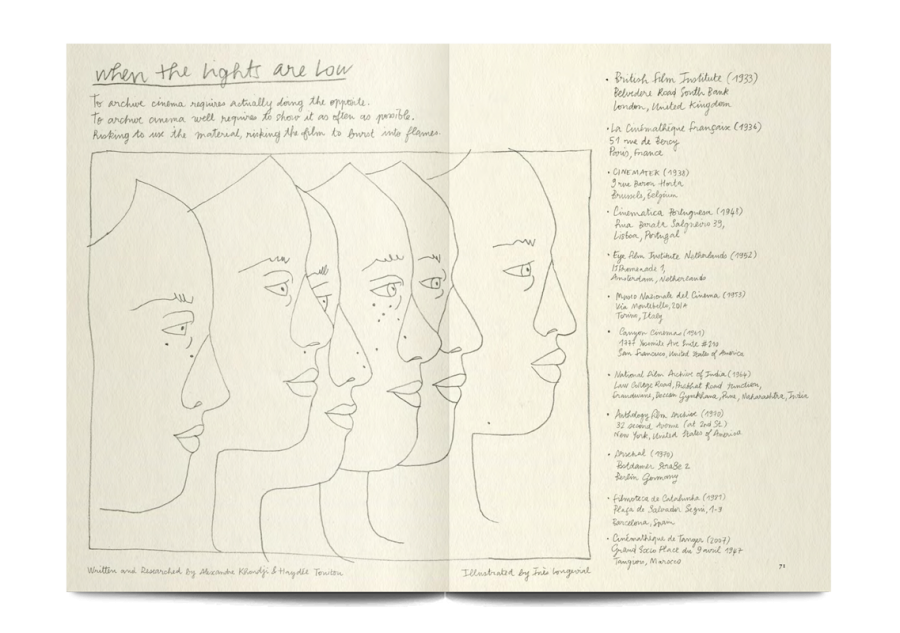 when the lights are low
To archive cinema requires actually doing the opposite.
To archive cinema well requires to show it as often as possible.
Risking to use the material, risking the film to burst into flames.
• British Film Institute (1933)
Belvedere Road South Bank
London, United Kingdom
• La Cinémathèque Française (1936)
51 rue de Bercy
Paris, France
• CINEMATEK (1938)
9 rue Baron Horta
Brussels, Belgium
• Cinemateca Portuguesa (1948)
Rua Barata Salgueiro 39,
Lisboa, Portugal
• Eye Film Institute Netherlands (1952)
IJpromenade 1,
Amsterdam, Netherlands
• Museo Nazionale del Cinema (1953)
Via Montebello, 20/A
Torino, Italy
• Canyon Cinema (1961)
1777 Yosemite Ave Suite #210
San Francisco, United States of America
• National Film Archive of India (1964)
Law College Road, Prabhat Road Junction,
Erandwane, Deccan Gymkhana, Pune, Maharashtra, India
• Anthology Film Archive (1970)
32 second Avenue (at 2nd St.)
New York, United States of America
• Arsenal (1970)
Potsdamer Straße 2
Berlin Germany
• Filmoteca de Catalunya (1981)
Plaça de Salvador Seguí, 1-9
Barcelona, Spain
• Cinémathèque de Tanger (2007)
Grand Socco Place du 9 avril 1947
Tangier, Morocco
Written and Researched by Alexandre Khondji & Haydée Touitou
Illustrated by Inès Longevial
71